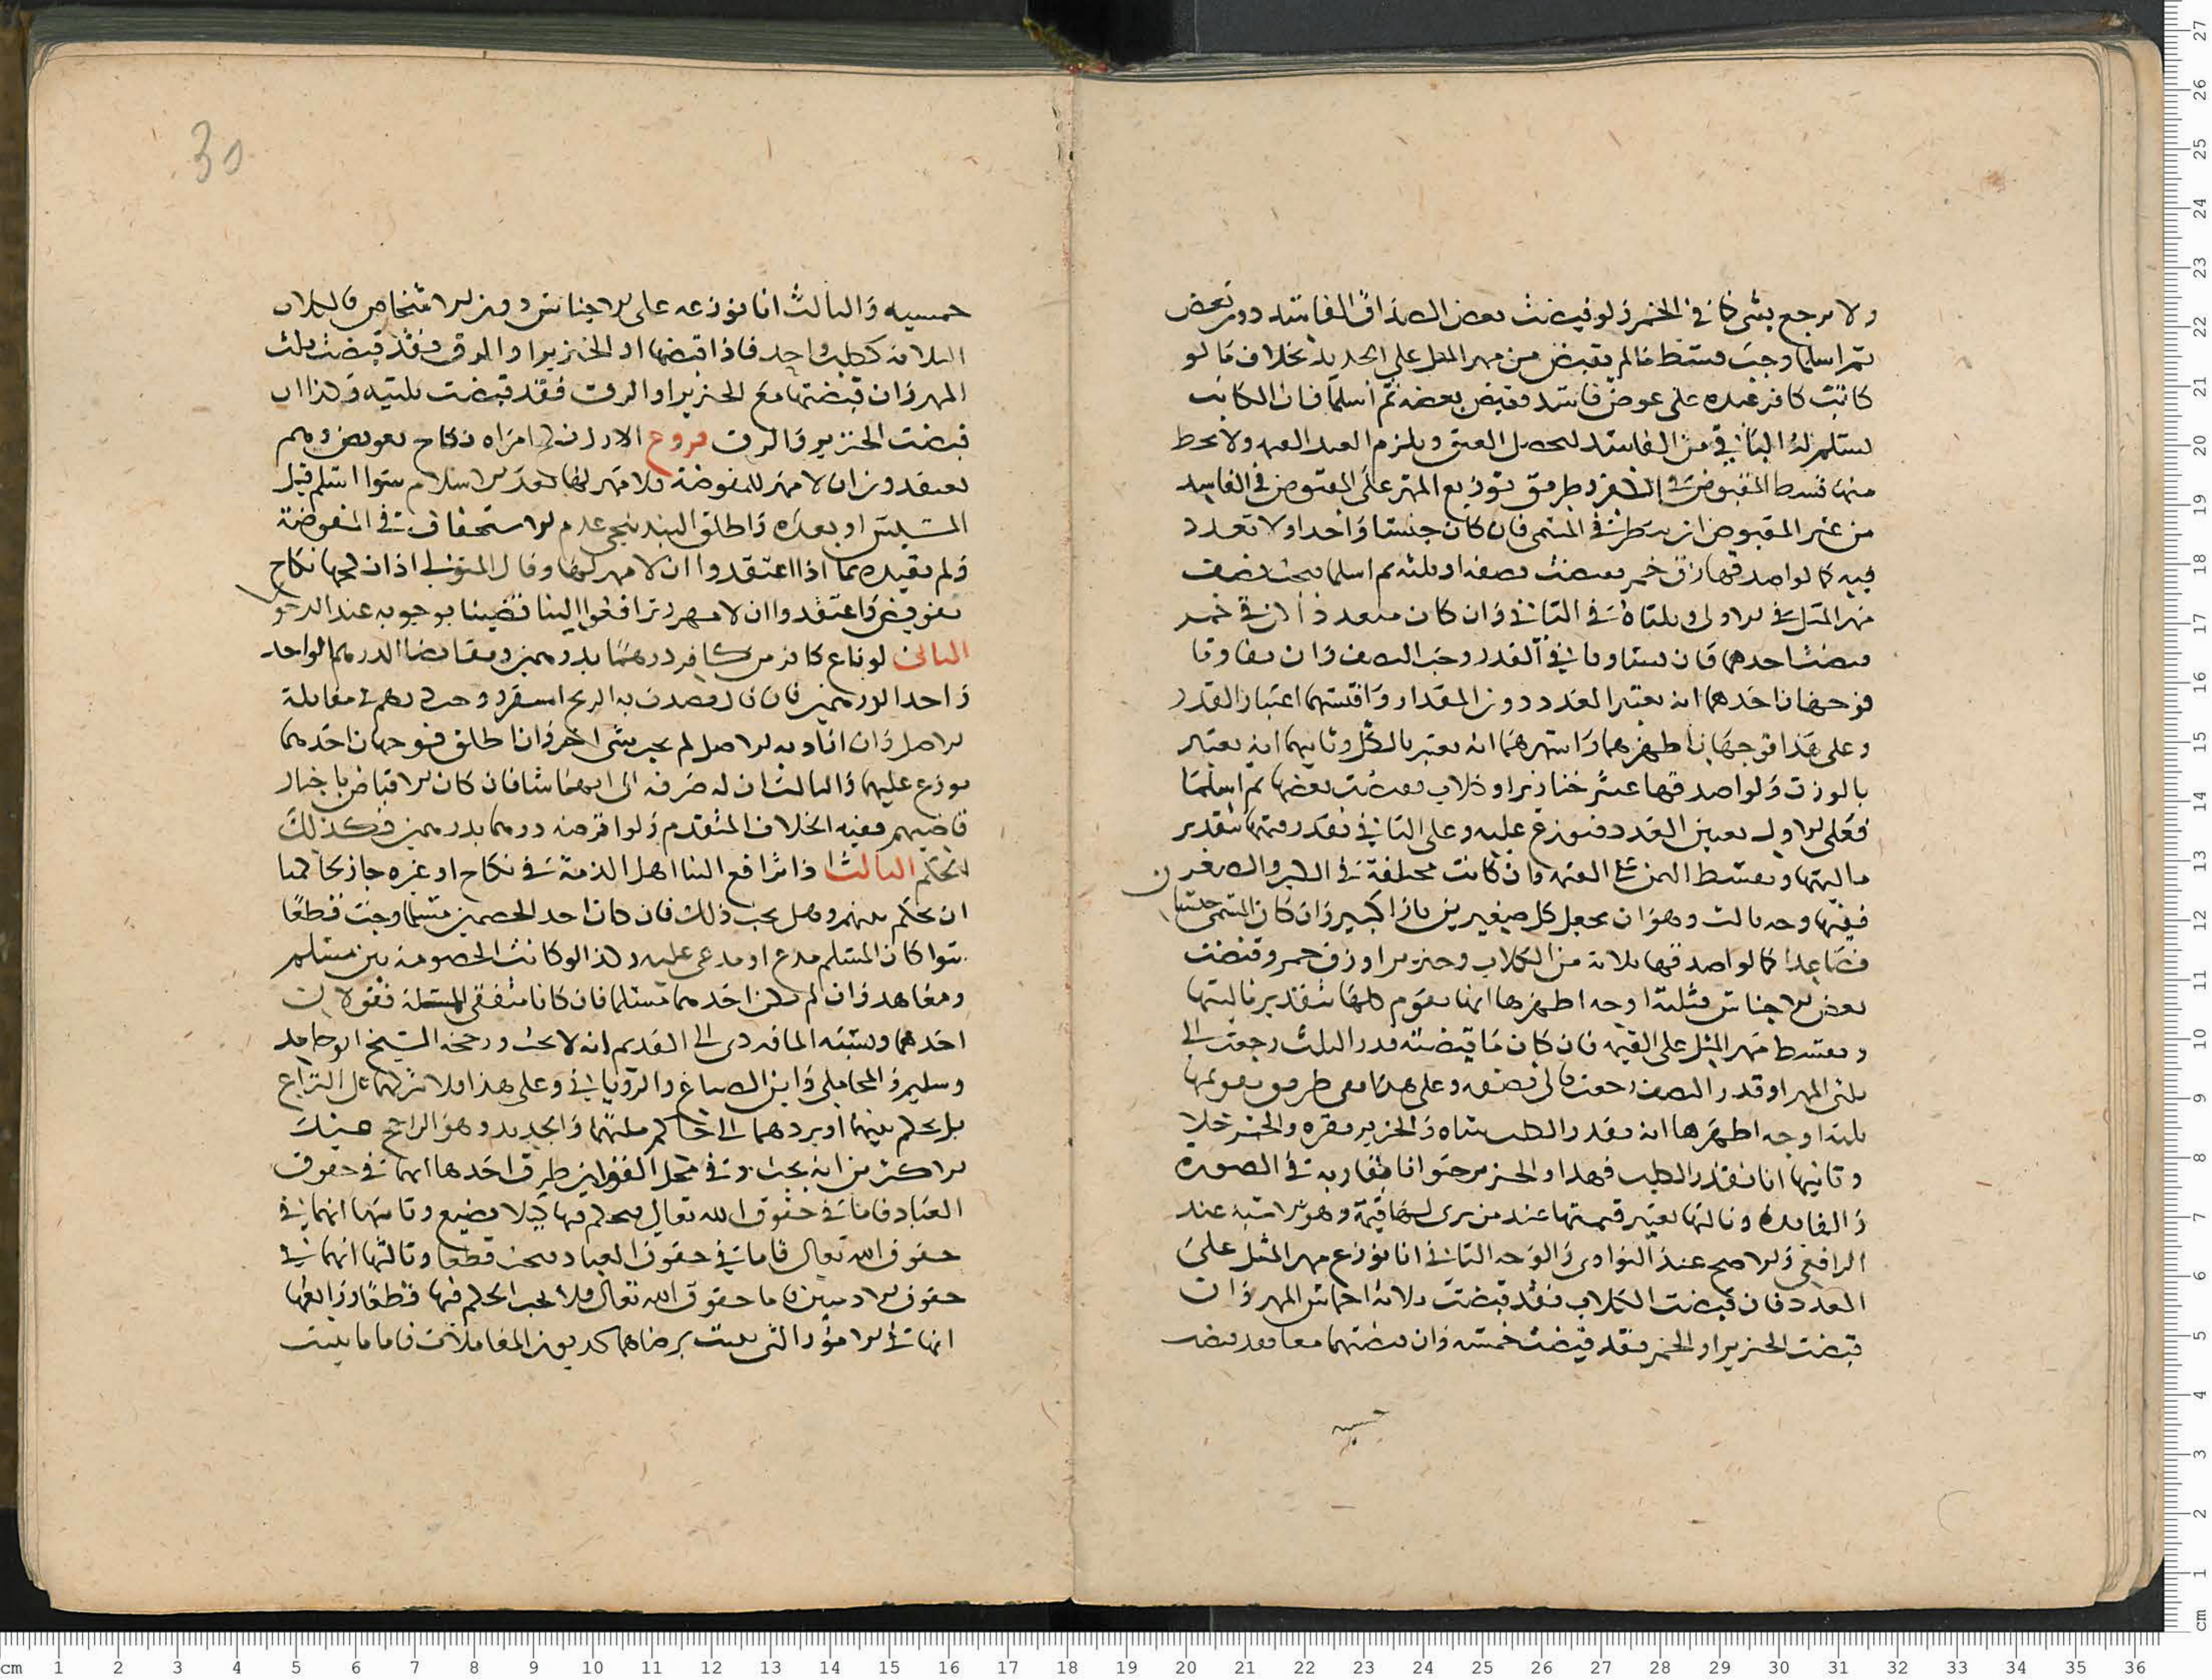 ولا يرجع بشي كما في الخمر ولو قبضت بعض الصداق الفاسد دون بعض
ثم اسلما وجب قسط مالم يقبض من مهر المثل على الجديد بخلاف ما لو
كاتب كافر عبده على عوض فاسد فقبض بعضه ثم اسلما فان المكاتب
يسلم له الباقي من الفاسد ليحصل العتق ويلزم العبد القيمة ولا يحط
منها قسط المقبوض في الشرك وطريق توزيع المهر على المقبوض في الفاسد
من غير المقبوض ان ينظر في المسمى فان كان جنسا واحدا ولا تعدد
فيه كما لو اصدقها زق خمر فقبضت نصفه او ثلثه ثم اسلما فيجب نصف
مهر المثل في الاولى وثلثاه في الثاني وان كان متعددا كزقي خمر
قبضت احدهما فان تساويا في القدر وجب النصف وان تفاوتا
فوجهان احدهما انه يعتبر العدد دون المقدار واقيسهما اعتبار القدر
وعلى هذا فوجهان اظهرهما واشهرهما انه يعتبر بالكيل وثانيهما انه يعتبر
بالوزن ولو اصدقها عشر خنازير او كلاب فقبضت بعضها ثم اسلما
فعلى الاول يعتبر العدد فيوزع عليه وعلى الثاني تقدر قيمتها بتقدير
ماليتها ويقسط الثمن على القيمة وان كانت مختلفة في الكبر والصغر
ففيها وجه ثالث وهو ان يجعل كل صغيرين بازا كبير وان كان المسمى جنسين
فصاعدا كما لو اصدقها ثلاثة من الكلاب وخنزيرا وزق خمر وقبضت
بعض الاجناس فثلثة اوجه اظهرها انها تقوم كلها بتقدير ماليتها
ويقسط مهر المثل على القيمة فان كان ما قبضته قدر الثلث رجعت الى
ثلثي المهر او قدر النصف رجعت الى نصفه وعلى هذا ففي طريق تقويمها
ثلثة اوجه اظهرها انه يقدر الكلب شاه والخنزير بقره والخمر خلا
وثانيها انا نقدر الكلب فهدا والخنزير حيوانا يقاربه في الصوره
والفايده وثالثها تعتبر قيمتها عند من يرى لها قيمة وهو الاشبه عند
الرافعي والاصح عند النواوى والوجه الثاني انا نوزع مهر المثل على
العدد فان قبضت الكلاب فقد قبضت ثلاثة اخماس المهر وان
قبضت الخنزير او الخمر فقد قبضت خمسه وان قبضتهما معا فقد قبضت
خمسيه
30
خمسيه والثالث انا نوزعه على الاجناس دون الاشخاص فالكلاب
الثلاثة ككلب واحد فاذا قبضها او الخنزير او الزق فقد قبضت ثلث
المهر وان قبضتها مع الخنزير او الزق فقد قبضت ثلثيه وكذا ان
قبضت الخنزير والزق فروع الاول نكح امراه نكاح تفويض وهم
يعتقدون ان لا مهر للمفوضة فلا مهر لها بعد الاسلام سوا اسلم قبل
المسيس او بعده واطلق البندنيجي عدم الاستحقاق في المفوضة
ولم يقيده بما اذا اعتقدوا ان لا مهر لها وقال المتولي اذا نكحها نكاح
تفويض واعتقدوا ان لا مهر وترافعوا الينا قضينا بوجوبه عند الدخول
الثاني لو باع كافر من كافر درهما بدرهمين وتقابضا الدرهم الواحد
واحد الدرهمين فان كان قصدت به الربح استقر وجب درهم في مقابلة
الاصل وان اداه به الاصل لم يجب شي اخر وان اطلق فوجهان احدهما
يوزع عليهما والثالث ان له صرفه الى ايهما شا فان كان الاقباض باجبار
قاضيهم ففيه الخلاف المتقدم ولو اقرضه درهما بدرهمين فكذلك
الحكم الثالث اذا ترافع الينا اهل الذمة في نكاح او غيره جاز لحاكمنا
ان يحكم بينهم وهل يجب ذلك فان كان احد الخصمين مسلما وجب قطعا
سوا كان المسلم مدع او مدعى عليه وكذا لو كانت الخصومة بين مسلم
ومعاهد وان لم يكن احدهما مسلما فان كانا متفقي الملة فقولان
احدهما ونسبه الماوردى الى القديم انه لا يجب ورجحه الشيخ ابو حامد
وسليم والمحاملي وابن الصباغ والروياني وعلى هذا فلا نتركهما على النزاع
بل يحكم بينهما او يردهما الى حاكم ملتهما والجديد وهو الراجح عند
الاكثرين انه يجب وفي محل القولين طرق احدها انهما في حقوق
العباد فاما في حقوق الله تعالى فيحكم فيها ليلا تضيع وثانيها انهما في
حقوق الله تعالى فاما في حقوق العباد فيجب قطعا وثالثها انهما في
حقوق الادميين واما حقوق الله تعالى فلا يجب الحكم فيها قطعا ورابعها
انها في الامور التي تثبت برضاهما كديون المعاملات فاما ما يثبت